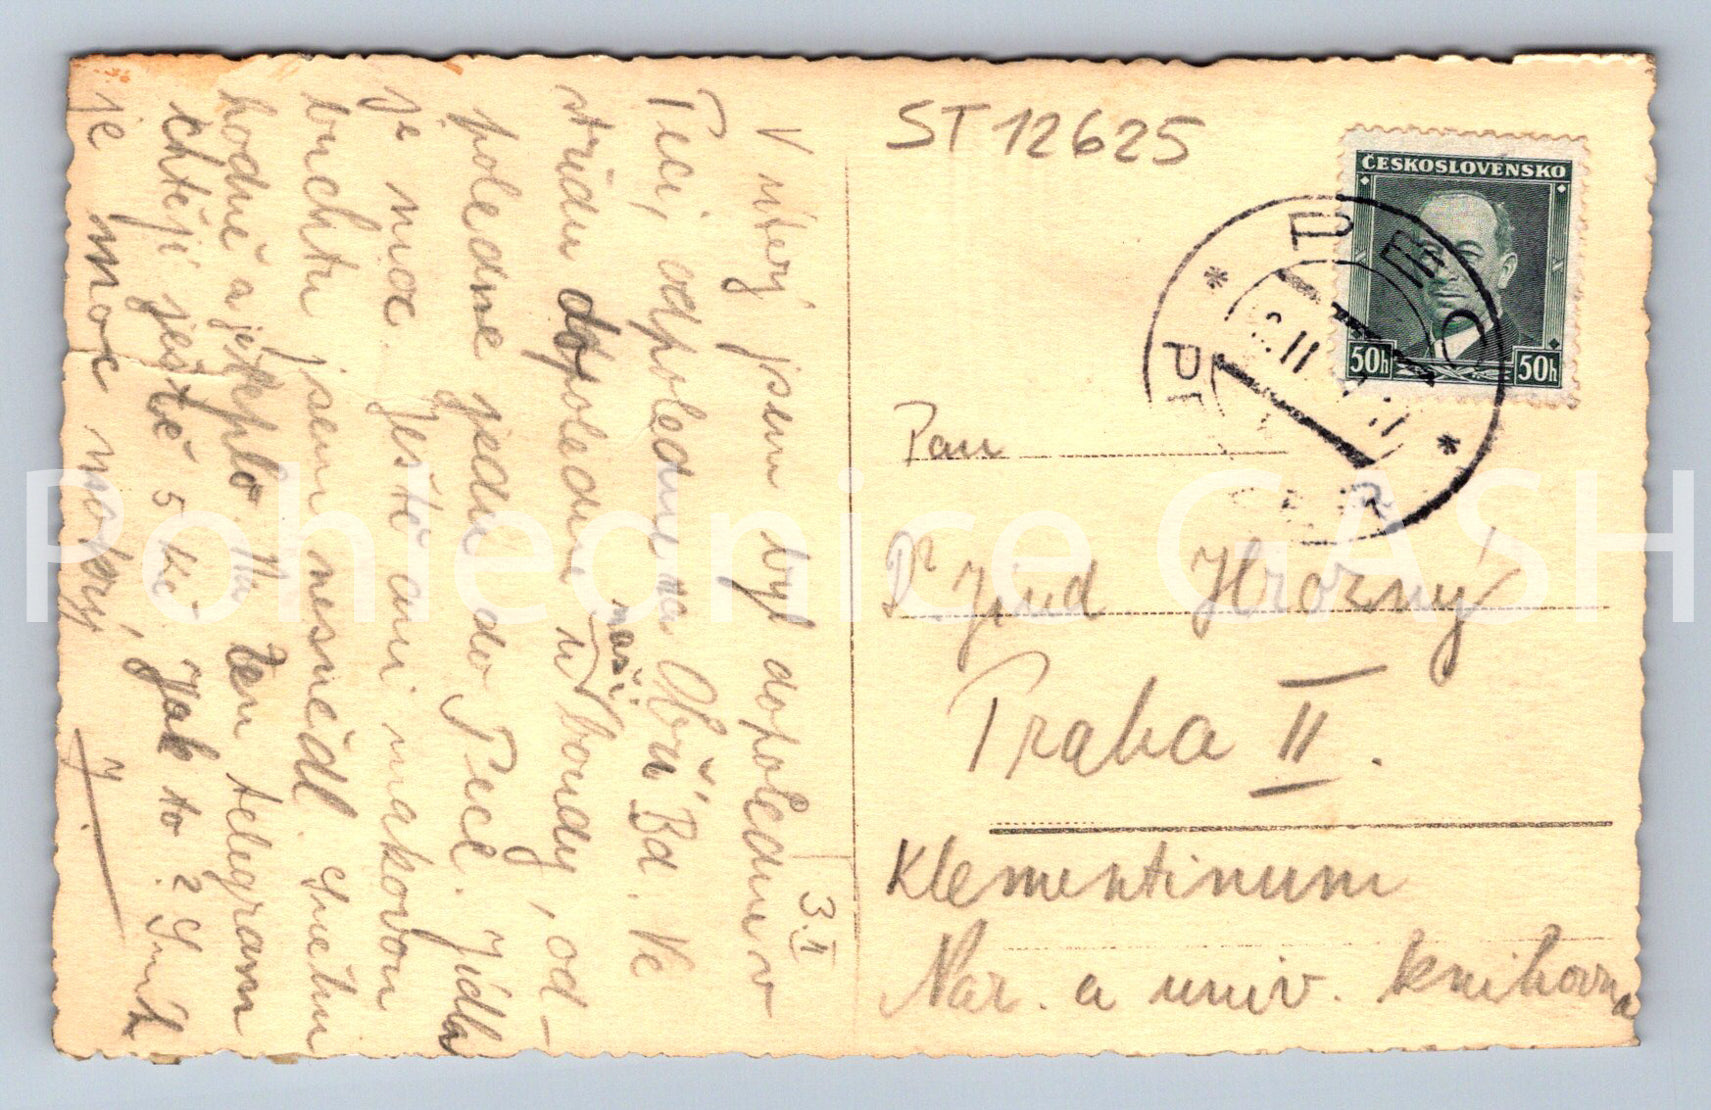 3.II
V úterý jsem byl dopoledne v
Peci, odpoledne na Obří Bd. Ve
středu dopoledne u naší boudy, od-
poledne jedu do Pece. Jídla
je moc. Ještě ani makovou
buchtu jsem nesnědl. Sněhu
hodně a je teplo. Na ten telegram
chtějí ještě 5 kč. Jak to? Sníh
je moc mokrý.
J.
ST 12625
ČESKOSLOVENSKO
50h 50h
PEC
Pan
Dr Jind Hrozný
Praha II.
Klementinum
Nár. a univ. knihovna
Pohlednice GASH